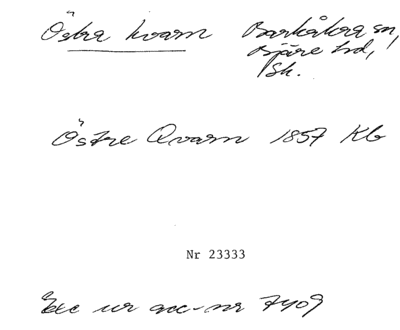 Östra kvarn Barkåkra sn,
Bjäre hd,
Sk.
Östre Qvarn 1857 Kb
Nr 23333
Exc ur acc-nr 7409